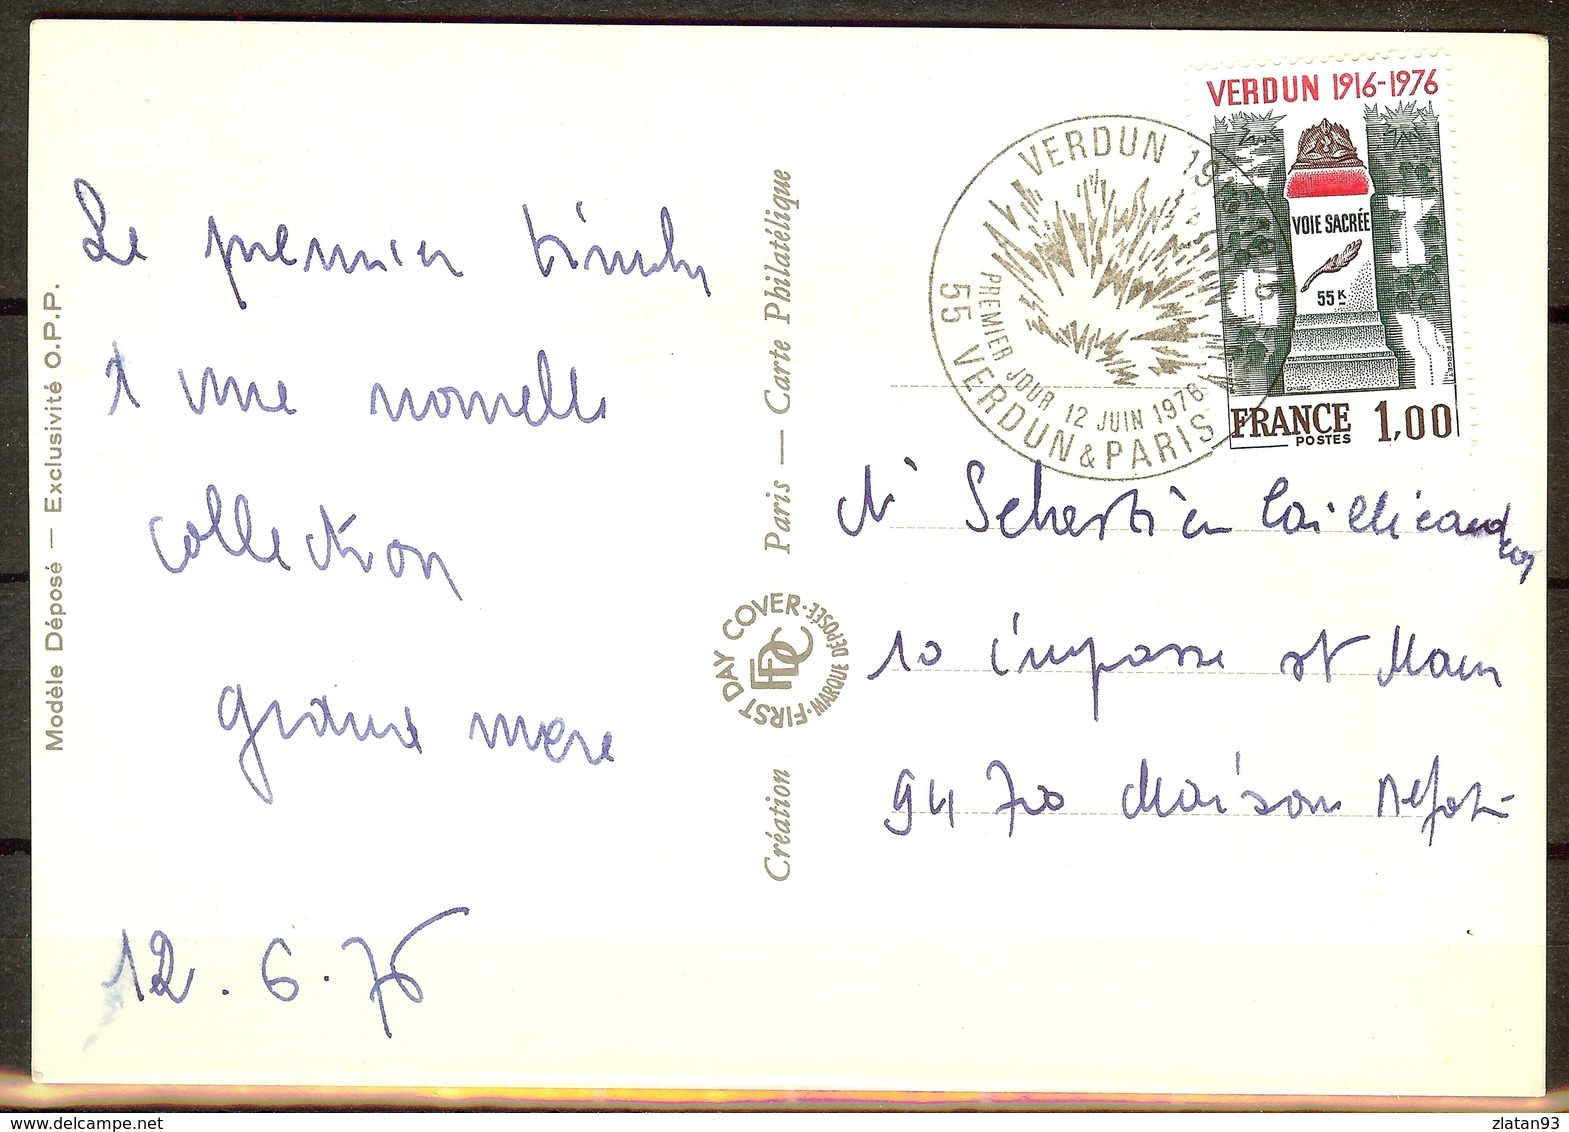 Le premier timbre
d'une nouvelle
collection
grand mère
12.6.76
Modèle Déposé — Exclusivité O.P.P.
Création
Paris — Carte Philatélique
FIRST DAY COVER · MARQUE DÉPOSÉE ·
FDC
VERDUN 19
1976
PREMIER JOUR 12 JUIN 1976
55 VERDUN & PARIS
VERDUN 1916-1976
VOIE SACRÉE
55 K
FRANCE 1,00
POSTES
Sebastien
10 impasse st Maur
94 700 Maison Alfort
zlatan93